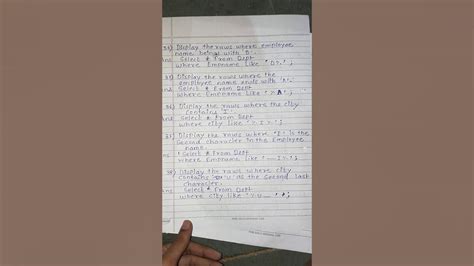 34) Display the rows where employee
name begins with 'D'.
Ans Select * From Dept
where Empname Like 'D%';
35) Display the rows where the
employee name ends with 'A'.
Ans Select * From Dept
where Empname Like '%A';
36) Display the rows where the city
contains 'I'.
Ans Select * From Dept
where city like '%I%';
37) Display the rows where 'I' is the
second character in the Employee
name.
Ans Select * From Dept
where Empname like '__I%';
38) Display the rows where city
contains 'U' as the second last
character.
Ans Select * From Dept
where city like '%U__';